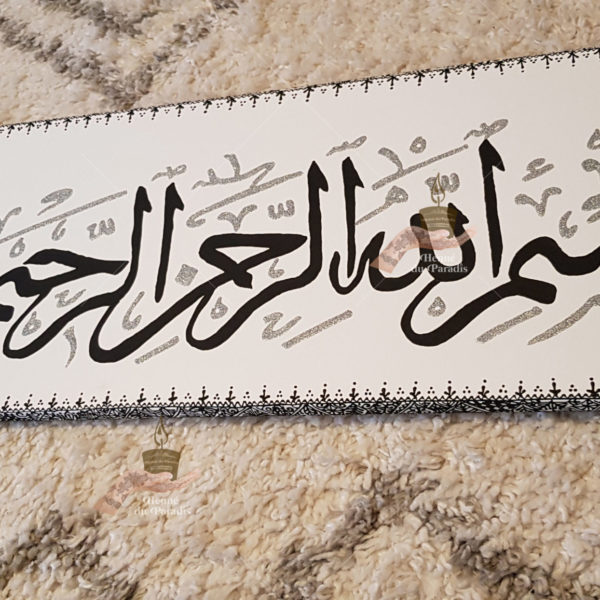 بسم الله الرحمن الرحيم
Henné
du Paradis
Henné
du Paradis